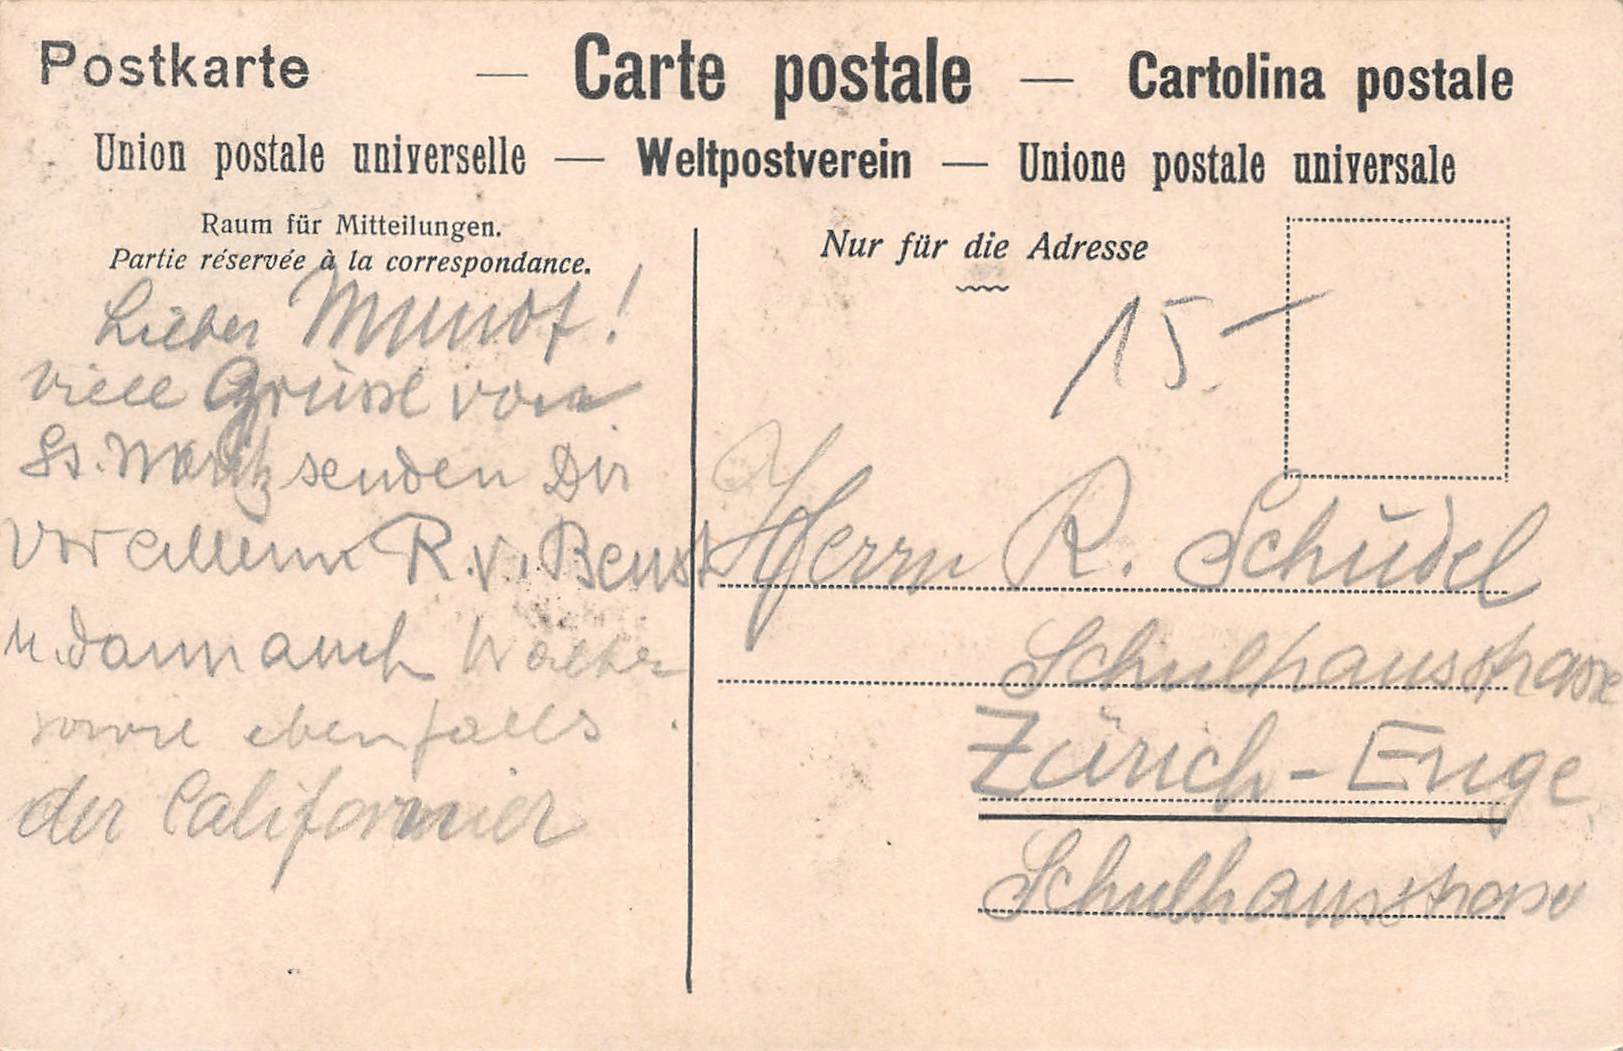 Postkarte — Carte postale — Cartolina postale
Union postale universelle — Weltpostverein — Unione postale universale
Raum für Mitteilungen.
Partie réservée à la correspondance.
Lieber !
viele Grüsse von
St. Moritz senden Dir
vor allem R. v. Beust
u. dann auch Walter
sowie ebenfalls
der Californier
Nur für die Adresse
15.–
Herrn R. Schüdel
Schulhausstrasse
Zürich-Enge
Schulhausstrasse